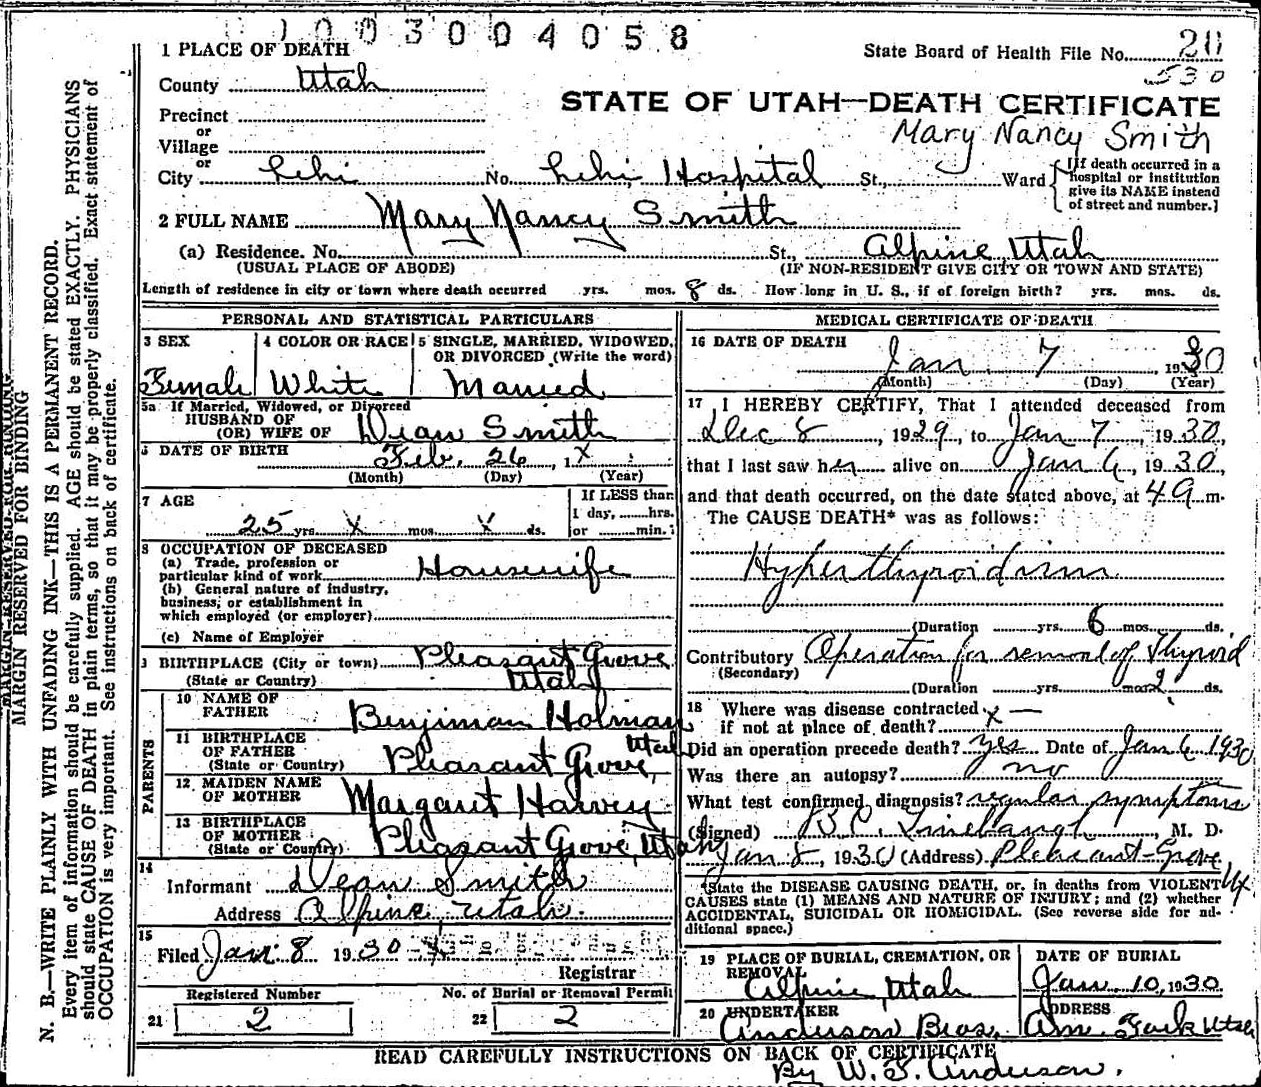 1003004058
1 PLACE OF DEATH
State Board of Health File No. 20
530
County Utah
STATE OF UTAH—DEATH CERTIFICATE
Precinct
Mary Nancy Smith
or
Village
or
City Lehi No. Lehi Hospital St., Ward
[If death occurred in a hospital or institution give its NAME instead of street and number.]
2 FULL NAME Mary Nancy Smith
(a) Residence. No. St., Alpine, Utah
(USUAL PLACE OF ABODE) (IF NON-RESIDENT GIVE CITY OR TOWN AND STATE)
Length of residence in city or town where death occurred yrs. mos. 8 ds. How long in U. S., if of foreign birth? yrs. mos. ds.
PERSONAL AND STATISTICAL PARTICULARS
3 SEX 4 COLOR OR RACE 5 SINGLE, MARRIED, WIDOWED, OR DIVORCED (Write the word)
Female White Married
5a If Married, Widowed, or Divorced
HUSBAND OF
(OR) WIFE OF Dean Smith
6 DATE OF BIRTH Feb. 26, 1 x
(Month) (Day) (Year)
7 AGE
If LESS than
1 day, hrs.
25 yrs. x mos. x ds. or min.
8 OCCUPATION OF DECEASED
(a) Trade, profession or
particular kind of work Housewife
(b) General nature of industry,
business, or establishment in
which employed (or employer)
(c) Name of Employer
9 BIRTHPLACE (City or town) Pleasant Grove
(State or Country) Utah
PARENTS
10 NAME OF
FATHER Benjiman Holman
11 BIRTHPLACE
OF FATHER
(State or Country) Pleasant Grove, Utah
12 MAIDEN NAME
OF MOTHER Margaut Harvey
13 BIRTHPLACE
OF MOTHER
(State or Country) Pleasant Grove, Utah
14
Informant Dean Smith
Address Alpine, Utah.
15
Filed Jan. 8 1930
Registrar
Registered Number No. of Burial or Removal Permit
21 2 22 2
MEDICAL CERTIFICATE OF DEATH
16 DATE OF DEATH
Jan 7, 1930
(Month) (Day) (Year)
17 I HEREBY CERTIFY, That I attended deceased from
Dec 8, 1929, to Jan 7, 1930,
that I last saw her alive on Jan 6, 1930,
and that death occurred, on the date stated above, at 4 a m.
The CAUSE DEATH* was as follows:
Hyperthyroidism
(Duration yrs. 6 mos. ds.
Contributory Operation for removal of thyroid
(Secondary)
(Duration yrs. mos. 2 ds.
18 Where was disease contracted
if not at place of death? x —
Did an operation precede death? yes Date of Jan 6 1930
Was there an autopsy? no
What test confirmed diagnosis? regular symptoms
(Signed) B. C. Linebaugh, M. D.
Jan 8, 1930 (Address) Pleasant Grove Ut
*State the DISEASE CAUSING DEATH, or, in deaths from VIOLENT
CAUSES state (1) MEANS AND NATURE OF INJURY; and (2) whether
ACCIDENTAL, SUICIDAL OR HOMICIDAL. (See reverse side for additional space.)
19 PLACE OF BURIAL, CREMATION, OR REMOVAL DATE OF BURIAL
Alpine, Utah Jan. 10, 1930
20 UNDERTAKER ADDRESS
Anderson Bros. Am. Fork Utah
READ CAREFULLY INSTRUCTIONS ON BACK OF CERTIFICATE
By W. F. Anderson.
MARGIN RESERVED FOR BINDING
MARGIN RESERVED FOR BINDING
N. B.—WRITE PLAINLY WITH UNFADING INK—THIS IS A PERMANENT RECORD.
Every item of information should be carefully supplied. AGE should be stated EXACTLY. PHYSICIANS
should state CAUSE OF DEATH in plain terms, so that it may be properly classified. Exact statement of
OCCUPATION is very important. See instructions on back of certificate.